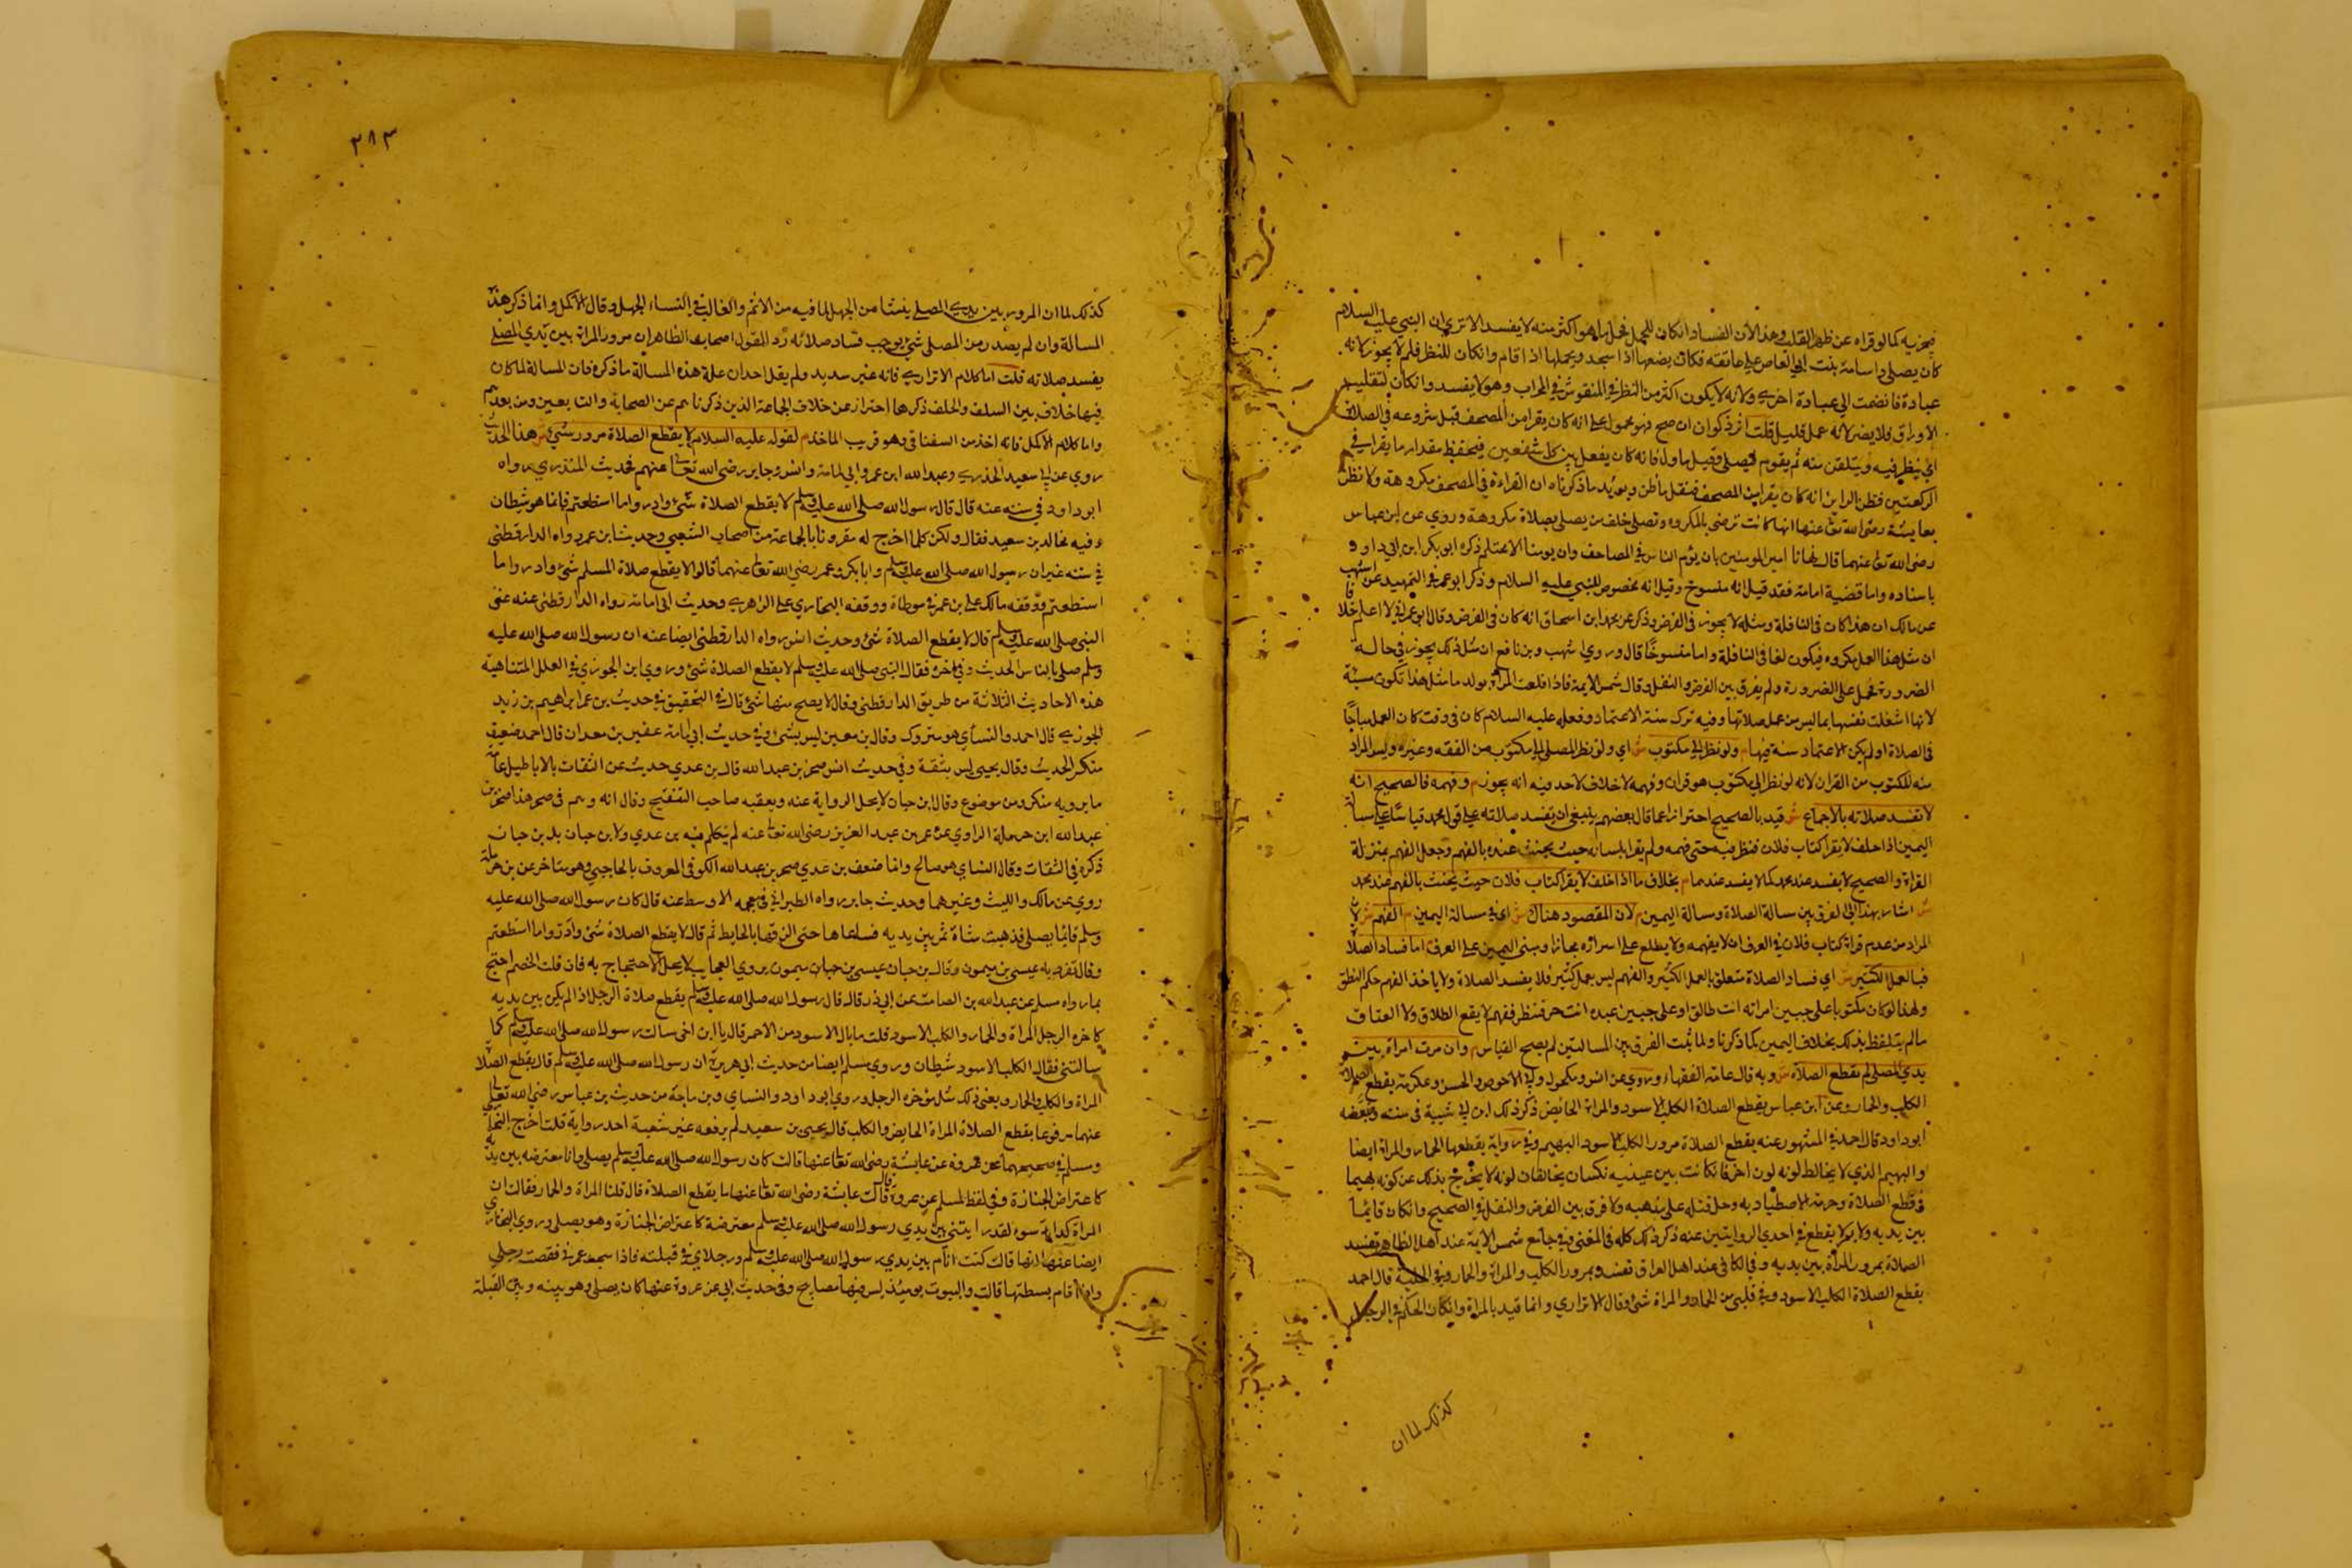 فيجزيه كما لو قراه عن ظهر القلب وهذا لان الفساد ان كان للحمل فحمل ما هو اكثر منه لا يفسد الا تري ان النبي عليه السلام
كان يصلي و امامة بنت ابي العاص علي عاتقه فكان يضعها اذا سجد ويحملها اذا قام وان كان للنظر فلم لا يجوز لانه
عبادة فانضمت الي عبادة اخري ولانه لا يكون اكثر من النظر في المنقوش في المحراب وهو لا يفسد وان كان لتقليب
الاوراق فلا يضر لانه عمل قليل قلت اثر ذكوان ان صح فهو محمول علي انه كان يقرا من المصحف قبل شروعه في الصلاة
اي ينظر فيه ويتلقن منه ثم يقوم فيصلي وقيل ماول فانه كان يفعل بين كل شفعين فيحفظ مقدار ما يقرا في
الركعتين فظن الراي انه كان يقرا من المصحف فنقل ما ظن ويويد ما ذكرناه ان القراءة في المصحف مكروهة ولا نظن
بعايشة رضي الله تعالى عنها انها كانت ترضي بالمكروه وتصلي خلف من يصلي بصلاة مكروهة وروي عن ابن عباس
رضي الله تعالى عنهما قال نهانا امير المومنين بان يؤم الناس في المصاحف وان يومنا الا محتلم ذكره ابو بكر ابن ابي داود
باسناده واما قضية امامة فقد قيل انه منسوخ وقيل انه مخصوص للنبي عليه السلام وذكر ابو عمر في التمهيد عن اشهب
عن مالك ان هذا كان في النافلة ومثله لا يجوز في الفرض وذكر عن محمد ابن اسحاق انه كان في الفرض وقال ابو عمر اني لا اعلم خلافا
ان مثل هذا العمل مكروه فيكون لغا في النافلة واما منسوخا قال وروي اشهب وبن نافع ان مثل ذلك يجوز في حالة
الضرورة فحمل علي الضرورة ولم يفرق بين الفرض والنفل وقال شمس الايمة فاذا فعلت المراة بولد ما مثل هذا تكون مسيئة
لانها اشغلت نفسها بما ليس من عمل صلاتها وفيه ترك سنة الاعتماد وفعله عليه السلام كان في وقت كان العمل مباحا
في الصلاة او لم يكن الاعتماد سنة فيها م ولو نظر الي مكتوب ش اي ولو نظر المصلي الي مكتوب من الفقه وغيره وليس المراد
منه المكتوب من القران لانه لو نظر الي مكتوب هو قران وفهمه لا خلاف لاحد فيه انه يجوز م وفهمه فالصحيح انه
لا تفسد صلاته بالاجماع ش قيد بالصحيح احترازا عما قال بعضهم ينبغي ان تفسد صلاته علي قول محمد قياسا علي مسالة
اليمين اذا حلف لا يقرا كتاب فلان فنظر فيه حتي فهمه ولم يقرا بلسانه حيث يحنث عنده بالفهم وجعل الفهم بمنزلة
القراة والصحيح لا يفسد عند محمد كما لا يفسد عندهما م بخلاف ما اذا حلف لا يقرا كتاب فلان حيث يحنث بالفهم عند محمد
ش اشار بهذا الي الفرق بين مسالة الصلاة ومسالة اليمين م لان المقصود هناك ش اي في مسالة اليمين م الفهم ش لان
المراد من عدم قراة كتاب فلان في العرف ان لا يفهمه ولا يطلع علي اسراره مجازا ومبني اليمين علي العرف م اما فساد الصلاة
فبالعمل الكثير ش اي فساد الصلاة متعلق بالعمل الكثير والفهم ليس بعمل كثير فلا يفسد الصلاة ولا ياخذ الفهم حكم النطق
ولهذا لو كان مكتوبا علي جبين امراته انت طالق او علي جبين عبده انت حر فنظر ففهم لا يقع الطلاق ولا العتاق
ما لم يتلفظ بذلك بخلاف اليمين كما ذكرنا ولما ثبت الفرق بين المسالتين لم يصح القياس م وان مرت امراة بين
يدي المصلي لم تقطع الصلاة ش وبه قال عامة الفقهاء وروي عن انس ومكحول وابي الاحوص والحسن وعكرمة يقطع الصلاة
الكلب والحمار وعن ابن عباس يقطع الصلاة الكلب الاسود والمراة الحايض ذكر ذلك ابن ابي شيبة في سننه
ابو داود قال احمد في المشهور عنه يقطع الصلاة مرور الكلب الاسود البهيم وفي رواية يقطعها الحمار والمراة ايضا
والبهيم الذي لا يخالط لونه لون اخر فان كانت بين عينيه نكتتان يخالفان لونه لا يخرج بذلك عن كونه بهيما
في قطع الصلاة وحرمة الاصطياد به وحل قتله علي مذهبه ولا فرق بين الفرض والنفل في الصحيح وان كان قايما
بين يديه ولا يمر لا يقطع في احدي الروايتين عنه ذكر ذلك كله في المغني وفي جامع شمس الايمة عند اهل الظاهر تفسد
الصلاة بمرور المراة بين يديه وفي الكافي عند اهل العراق تفسد بمرور الكلب والمراة والحمار وفي الحلية قال احمد
يقطع الصلاة الكلب الاسود وفي قلبي من الحمار والمراة شئ وقال الاتراري وانما قيد بالمراة وان كان الحكم في الرجل
كذلك لما ان
٢٨٣
كذلك لما ان المرور بين يدي المصلي ينشا من الجهل لما فيه من الاثم والغالب في النساء الجهل وقال الاكمل وانما ذكر هذه
المسالة وان لم يصدر من المصلي شئ يوجب فساد صلاته رد القول اصحاب الظاهر ان مرور المراة بين يدي المصلي
يفسد صلاته قلت اما كلام الاتراري فانه غير سديد ولم يقل احد ان علة هذه المسالة ما ذكره فان المسالة لما كان
فيها خلاف بين السلف والخلف ذكرها احتراز عن خلاف الجماعة الذين ذكرناهم عن الصحابة والتابعين ومن بعدهم
واما كلام الاكمل فانه اخذ من السغناقي وهو قريب الماخذ م لقوله عليه السلام لا يقطع الصلاة مرور شئ ش هذا الحديث
روي عن ابي سعيد الخدري وعبد الله ابن عمر وابي امامة وانس وجابر رضي الله تعالى عنهم فحديث الخدري رواه
ابو داود في سننه عنه قال قال رسول الله صلى الله عليه وسلم لا يقطع الصلاة شئ وادروا ما استطعتم فانما هو شيطان
وفيه مخالد بن سعيد فقال ولكن كلما اخرج له مقرونا بالجماعة من اصحاب الشعبي وحديث ابن عمر رواه الدارقطني
في سننه غير ان رسول الله صلى الله عليه وسلم وابا بكر وعمر رضي الله تعالى عنهما قالوا لا يقطع صلاة المسلم شئ وادروا ما
استطعتم ووقفه مالك علي بن عمر في موطاه ووقفه البخاري علي الزهري وحديث ابي امامة رواه الدارقطني عنه عن
النبي صلى الله عليه وسلم قال لا يقطع الصلاة شئ وحديث انس رواه الدارقطني ايضا عنه ان رسول الله صلى الله عليه
وسلم صلي بالناس الحديث وفي اخره فقال النبي صلى الله عليه وسلم لا يقطع الصلاة شئ وروي ابن الجوزي في العلل المتناهية
هذه الاحاديث الثلاثة من طريق الدارقطني وقال لا يصح منها شئ قال في التحقيق في حديث بن عمر ابراهيم بن زيد
الجوزي قال احمد والنسائي هو متروك وقال بن معين ليس بشئ وفي حديث ابي امامة عفير بن معدان قال احمد ضعيف
منكر الحديث وقال يحيي ليس بثقة وفي حديث انس صخر بن عبد الله قال بن عدي حديث عن الثقات بالاباطيل عامة
ما يرويه منكر ومن موضوع وقال ابن حبان لا يحل الرواية عنه وبعقبه صاحب التنقيح وقال انه وهم في صخر هذا صخر بن
عبد الله ابن حرملة الراوي عن عمر بن عبد العزيز رضي الله تعالى عنه لم يتكلم فيه بن عدي ولا بن حبان بل بن حبان
ذكره في الثقات وقال النسائي هو صالح وانما ضعف بن عدي صخر بن عبد الله الكوفي المعروف بالحاجبي وهو متاخر عن بن حرملة
روي عن مالك والليث وغيرهما وحديث جابر رواه الطبراني في معجمه الاوسط عنه قال كان رسول الله صلى الله عليه
وسلم قائما يصلي فذهبت شاة تمر بين يديه فساعاها حتي الزقها بالحايط ثم قال لا يقطع الصلاة شئ وادروا ما استطعتم
وقال تفرد به عيسي بن ميمون وقال بن حبان عيسي بن ميمون يروي العجايب لا يحل الاحتجاج به فان قلت الخصم احتج
بما رواه مسلم عن عبد الله بن الصامت عن ابي ذر قال قال رسول الله صلى الله عليه وسلم يقطع صلاة الرجل اذا لم يكن بين يديه
كاخرة الرحل المراة والحمار والكلب الاسود قلت ما بال الاسود من الاحمر قال يا ابن اخي سالت رسول الله صلى الله عليه وسلم كما
سالتني فقال الكلب الاسود شيطان وروي مسلم ايضا من حديث ابي هريرة ان رسول الله صلى الله عليه وسلم قال يقطع الصلاة
المراة والكلب والحمار ويغني ذلك مثل مؤخرة الرحل وروي ابو داود والنسائي وبن ماجة من حديث بن عباس رضي الله تعالى
عنهما مرفوعا يقطع الصلاة المراة الحايض والكلب قال يحيي بن سعيد لم يرفعه غير شعبة احد رواية قلت اخرج البخاري
ومسلم في صحيحيهما عن عروة عن عايشة رضي الله تعالى عنها قالت كان رسول الله صلى الله عليه وسلم يصلي وانا معترضة بين يديه
كاعتراض الجنازة وفي لفظ المسلم عن عروة قال قالت عايشة رضي الله تعالى عنها ما يقطع الصلاة قال قلنا المراة والحمار فقالت ان
المراة لدابة سوء لقد رايتني بين يدي رسول الله صلى الله عليه وسلم معترضة كاعتراض الجنازة وهو يصلي وروي البخاري
ايضا عنها انها قالت كنت انام بين يدي رسول الله صلى الله عليه وسلم ورجلاي في قبلته فاذا سجد غمزني فقبضت رجلي
واذا قام بسطتها قالت والبيوت يوميذ ليس فيها مصابيح وفي حديث ابي عن عروة عنها كان يصلي وهو بينه وبين القبلة